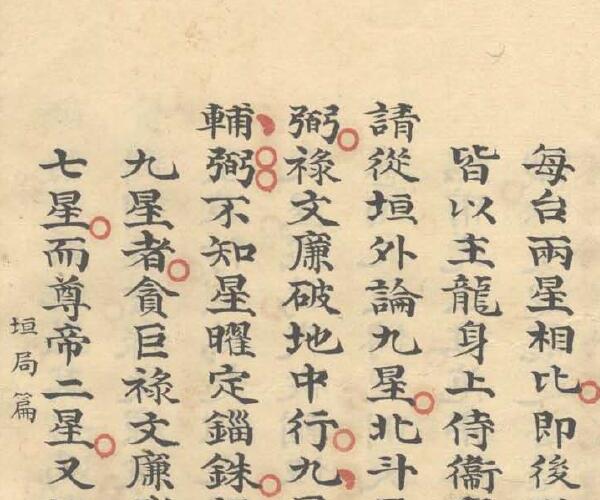 每台兩星相比即後
皆以主龍身上侍衞
請從垣外論九星北斗
弼祿文廉破地中行九
輔弼不知星曜定錙銖
九星者貪巨祿文廉
七星而尊帝二星又
垣局篇